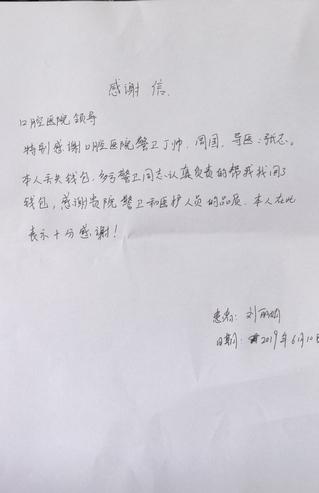 感谢信.
口腔医院领导
特别感谢口腔医院警卫丁帅,周国,导医:张志。
本人丢失钱包,多亏警卫同志认真负责的帮我找回了
钱包,感谢贵院警卫和医护人员的品质.本人在此
表示十分感谢!
患者:刘丽
日期:2019年6月10日